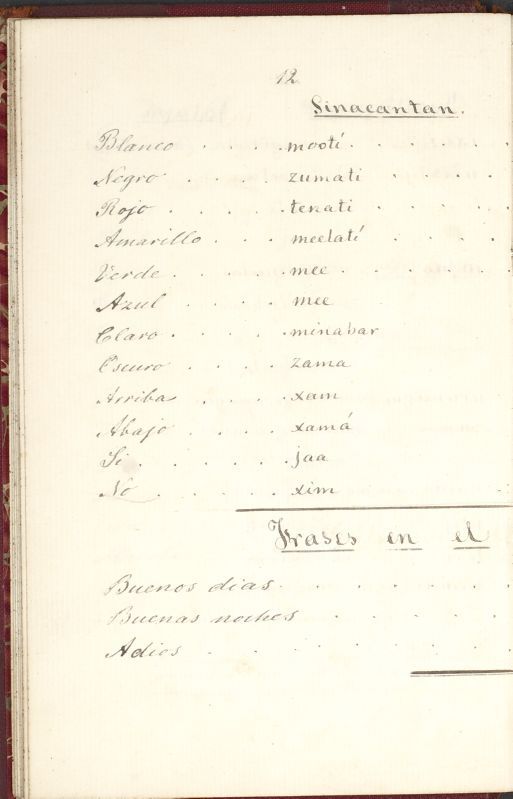 12
Sinacantan.
Blanco . . . . mootí . . . .
Negro . . . . zumati . . . .
Rojo . . . . tenati . . . .
Amarillo . . . . meelatí . . . .
Verde . . . . mee . . . . .
Azul . . . . mee
Claro . . . . minabar
Oscuro . . . . zama
Arriba . . . . xam
Abajo . . . . xamá
Si . . . . . jaa
No . . . . . xim
Frases en el
Buenos dias . . . . . .
Buenas noches . . . . .
Adios . . . . . . . .